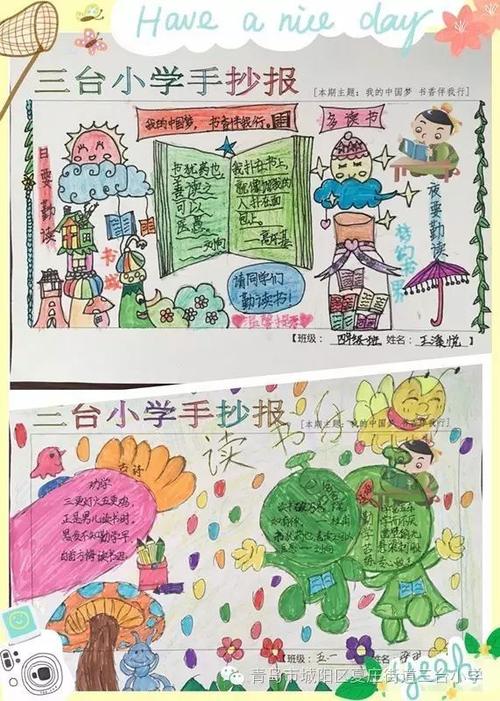 Have a nice day
三台小学手抄报
[本期主题：我的中国梦 书香伴我行]
我的中国梦，书香伴我行。
多读书
日要勤读
书城
书犹药也，
善读之
可以
医愚。
——刘向
我扑在书上，
就像饥饿的
人扑在面
包上。
——高尔基
夜要勤读
梦的世界
请同学们
勤读书！
温馨提示
【班级：四年级一班 姓名：王溪悦】
三台小学手抄报
[本期主题：我的中国梦 书香伴我行]
读书
古诗
劝学
三更灯火五更鸡，
正是男儿读书时。
黑发不知勤学早，
白首方悔读书迟。
【班级：五一
青岛市城阳区夏庄街道三台小学
yeah